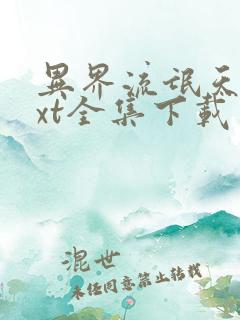 異界流氓天
xt全集下載
混世
未經同意禁止轉載